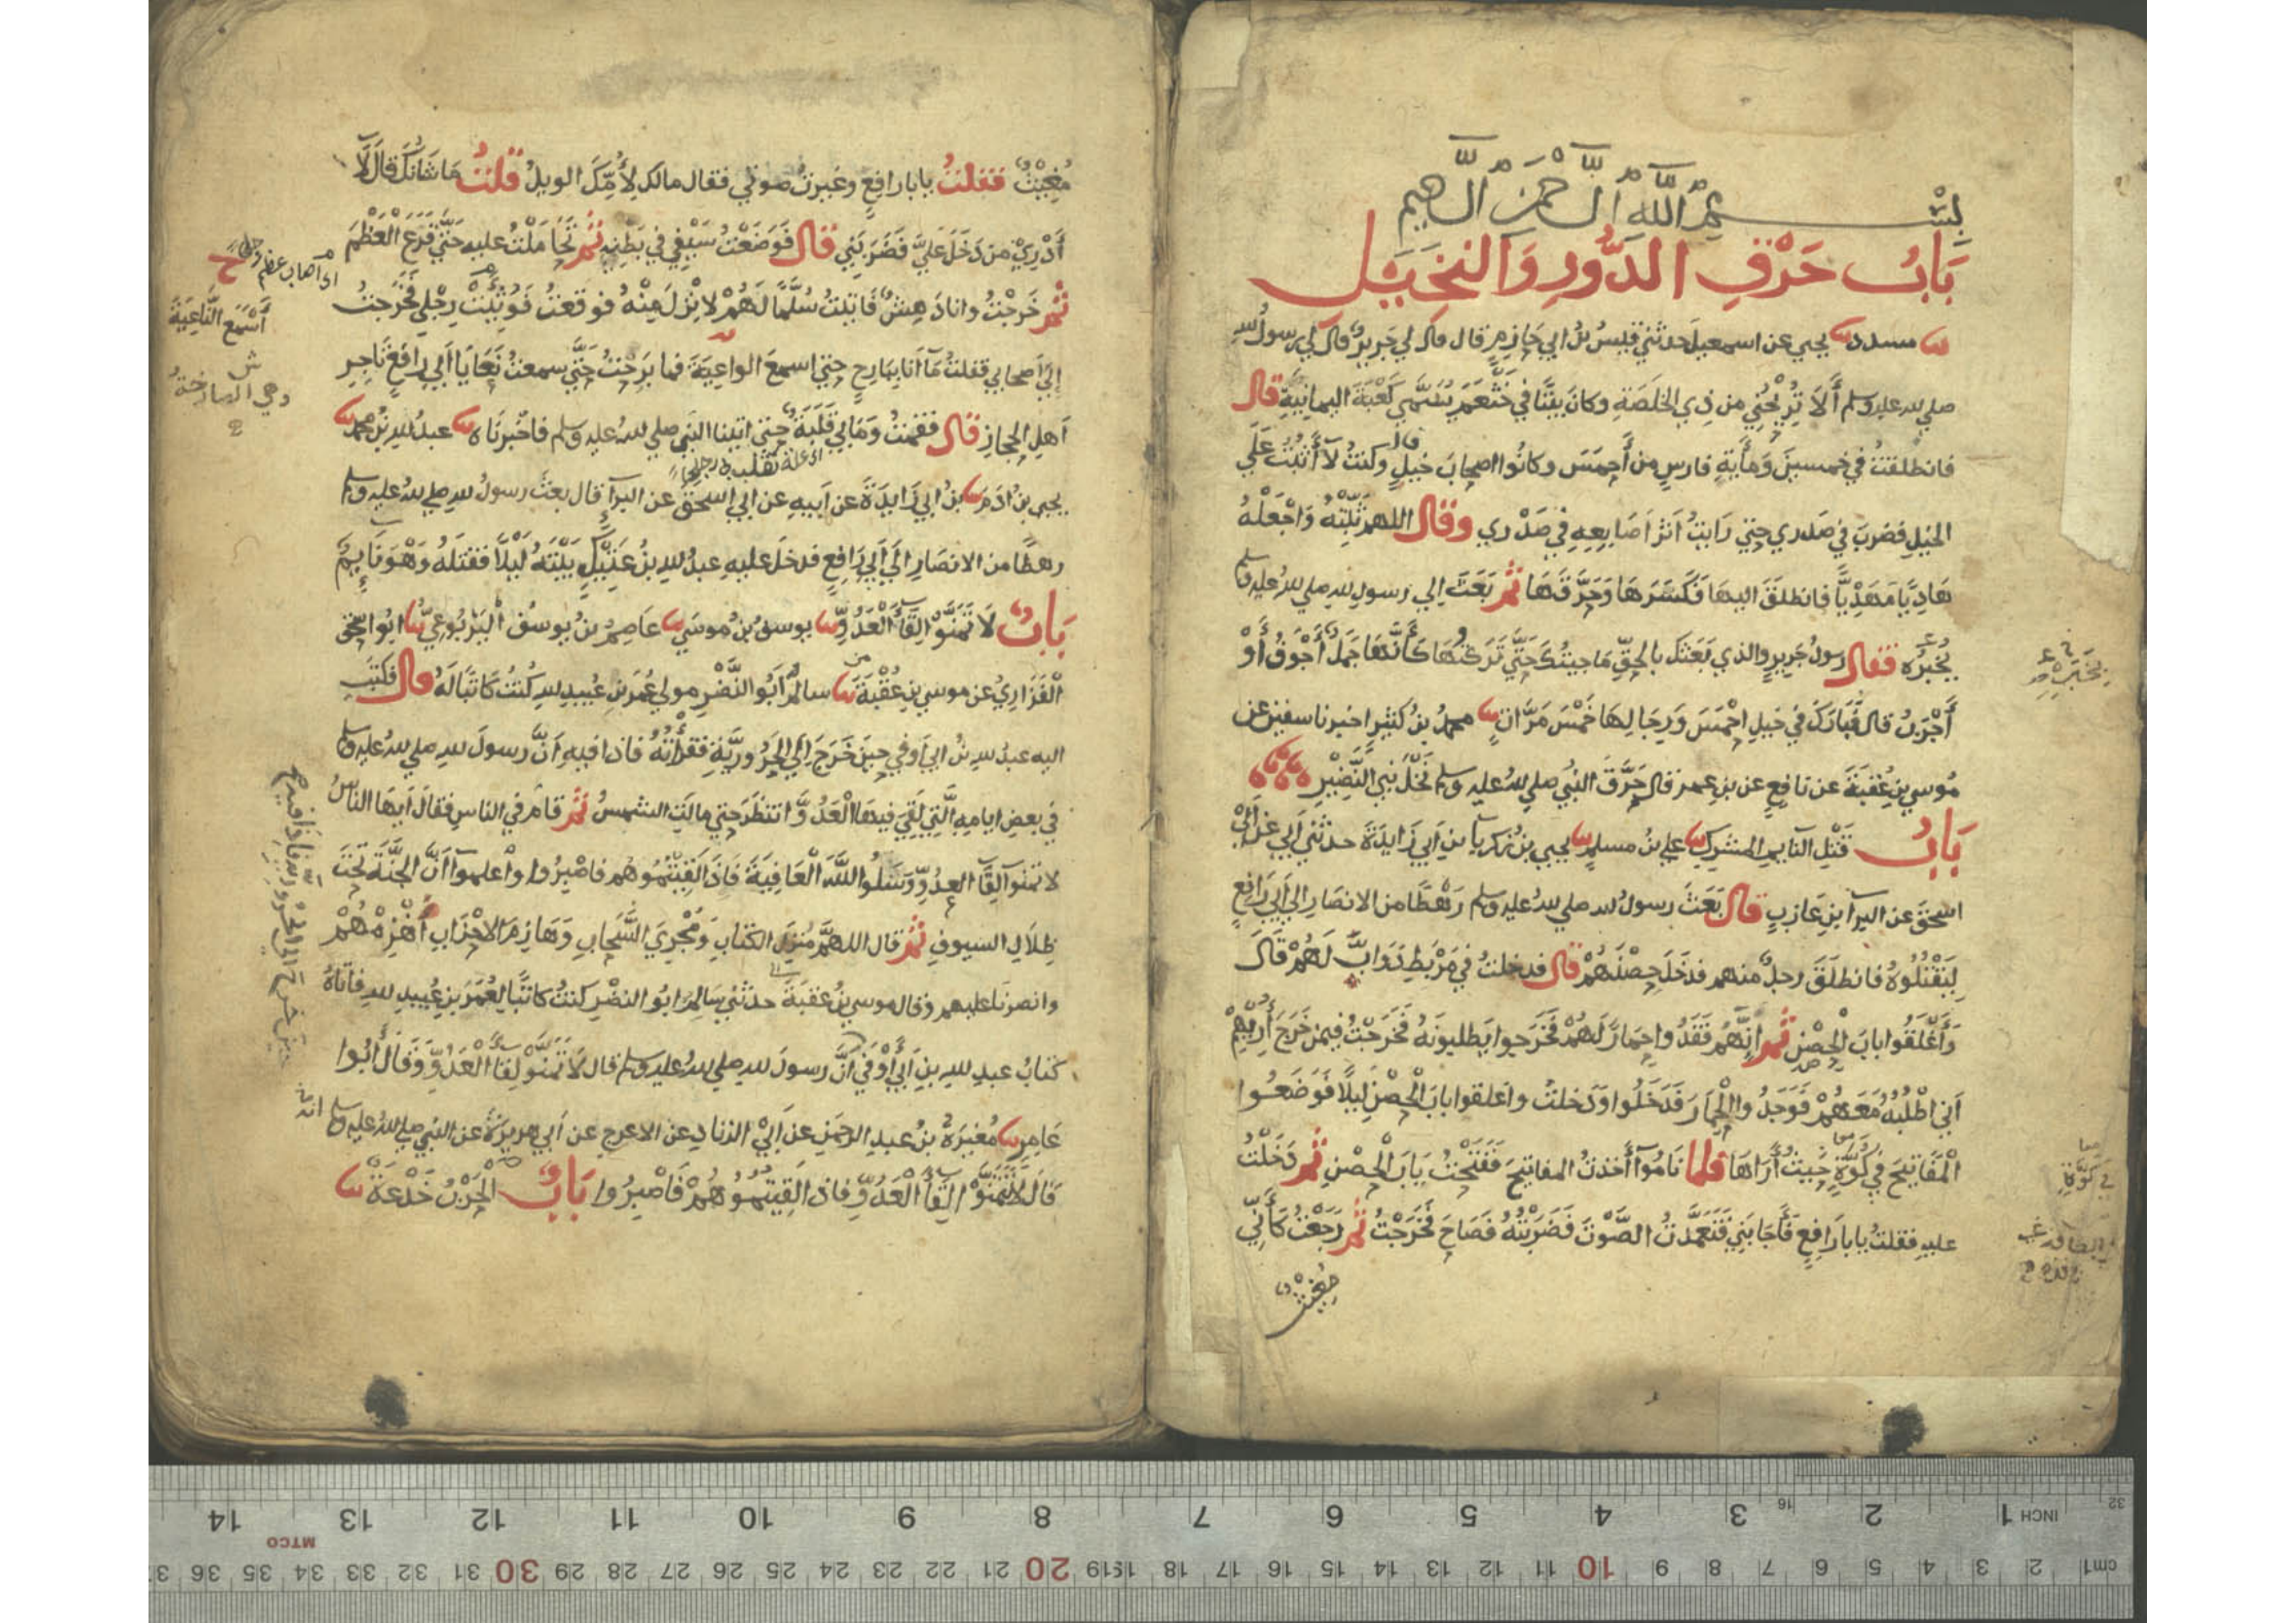 بسم الله الرحمن الرحيم
باب حرق الدور والنخيل
مسدد يحيى عن اسمعيل حدثني قيس بن ابي حازم قال قال لي جرير قال لي رسول الله
صلى الله عليه وسلم ألا تريحني من ذي الخلصة وكان بيتا في خثعم يسمى كعبة اليمانية قال
فانطلقت في خمسين ومأية فارس من أحمس وكانوا اصحاب خيل قال وكنت لا أثبت على
الخيل فضرب في صدري حتى رايت اثر اصابعه في صدري وقال اللهم ثبته واجعله
هاديا مهديا فانطلق اليها فكسرها وحرقها ثم بعث الى رسول الله صلى الله عليه وسلم
يخبره فقال رسول جرير والذي بعثك بالحق ما جيتك حتى تركتها كأنها جمل أجوف أو
أجرب قال فبارك في خيل احمس ورجالها خمس مرات محمد بن كثير اخبرنا سفين عن
موسى بن عقبة عن نافع عن بن عمر قال حرق النبي صلى الله عليه وسلم نخل بني النضير
باب قتل النايم المشرك علي بن مسلم يحيى بن زكريا بن أبي زايدة حدثني أبي عن أبي
اسحق عن البرآ بن عازب قال بعث رسول الله صلى الله عليه وسلم رهطا من الانصار الى أبي رافع
ليقتلوه فانطلق رجل منهم فدخل حصنهم قال فدخلت في مربط دواب لهم قال
وأغلقوا باب الحصن ثم إنهم فقدوا حمارا لهم فخرجوا يطلبونه فخرجت فيمن خرج أريهم
أني اطلبه معهم فوجدوا الحمار فدخلوا ودخلت واغلقوا باب الحصن ليلا فوضعوا
المفاتيح في كوة حيث أراها فلما ناموآ أخذت المفاتيح ففتحت باب الحصن ثم دخلت
عليه فقلت يابا رافع فأجابني فتعمدت الصوت فضربته فصاح فخرجت ثم رجعت كأني
مغيث
مغيث فقلت يابا رافع وغيرت صوتي فقال مالك لأمك الويل قلت ما شانك قال لا
أدري من دخل علي فضربني قال فوضعت سيفي في بطنه ثم تحاملت عليه حتى قرع العظم
ثم خرجت وانا دهش فاتيت سلما لهم لانزل منه فوقعت فوثئت رجلي فخرجت
إلى اصحابي فقلت مآ أنا ببارح حتى اسمع الواعية فما برحت حتى سمعت نعايا أبي رافع تاجر
اهل الحجاز قال فقمت وما بي قلبة حتى اتينا النبي صلى الله عليه وسلم فاخبرناه عبد الله بن محمد
اي علة تقلب رجلي
يحيى بن ادم بن ابي زايدة عن ابيه عن ابي اسحق عن البرآ قال بعث رسول الله صلى الله عليه وسلم
رهطا من الانصار الى أبي رافع فدخل عليه عبد الله بن عتيك بيته ليلا فقتله وهو نايم
باب لا تمنوا لقآ العدو يوسف بن موسى عاصم بن يوسف اليربوعي ابو اسحق
الفزاري عن موسى بن عقبة سالم أبو النضر مولى عمر بن عبيد الله كنت كاتبا له قال كتب
اليه عبد الله بن ابي أوفى حين خرج إلى الحرورية فقرأته فاذا فيه أن رسول الله صلى الله عليه وسلم
في بعض ايامه التي لقي فيها العدو انتظر حتى مالت الشمس ثم قام في الناس فقال أيها الناس
لا تمنوا لقآ العدو وسلوا الله العافية فاذا لقيتموهم فاصبروا واعلموآ أن الجنة تحت
ظلال السيوف ثم قال اللهم منزل الكتاب ومجري السحاب وهازم الاحزاب أهزمهم
وانصرنا عليهم وقال موسى بن عقبة حدثني سالم ابو النضر كنت كاتبا لعمر بن عبيد الله فاتاه
كتاب عبد الله بن أبي أوفى أن رسول الله صلى الله عليه وسلم قال لا تمنوا لقآ العدو وقال أبوا
عامر مغيرة بن عبد الرحمن عن أبي الزناد عن الاعرج عن أبي هريرة عن النبي صلى الله عليه وسلم انه
قال لا تمنوا لقآ العدو فاذا لقيتموهم فاصبروا باب الحرب خدعة
أسمع الناعية
وهي الصارخة
حين خرج الى الحرورية